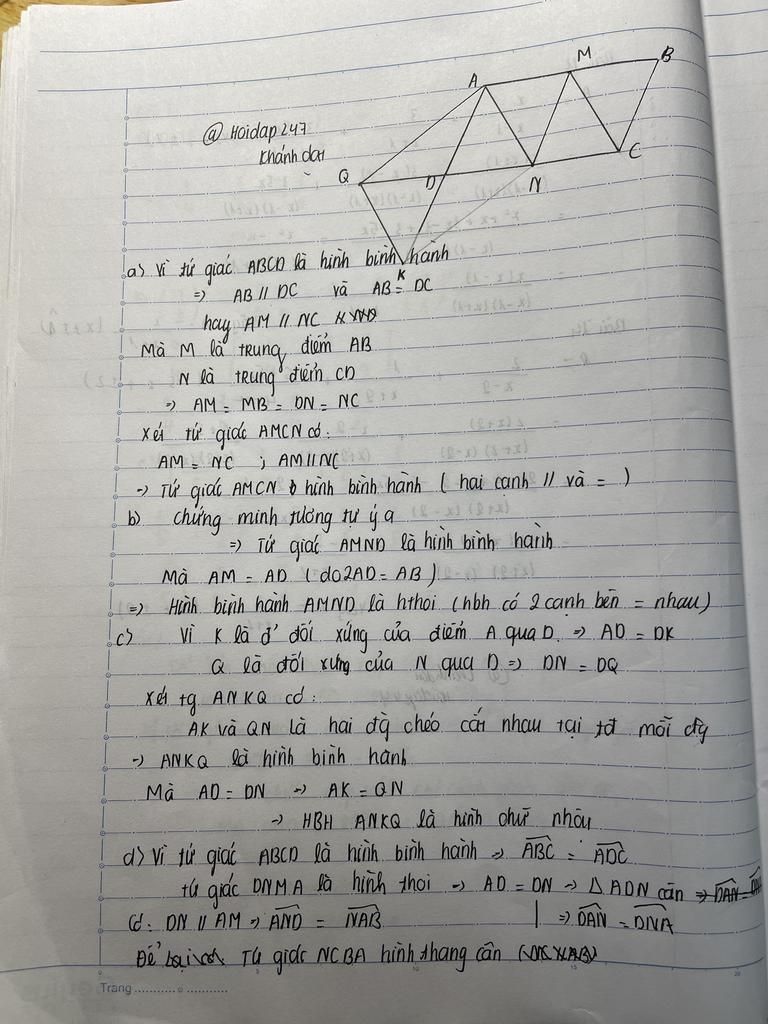 A M B
@ Hoidap247
Khánh dat
Q D N C
K
a) Vì tứ giác ABCD là hình bình hành
=> AB // DC và AB = DC
hay AM // NC
Mà M là trung điểm AB
N là trung điểm CD
=> AM = MB = DN = NC
Xét tứ giác AMCN có:
AM = NC ; AM // NC
-> Tứ giác AMCN hình bình hành ( hai cạnh // và = )
b) chứng minh tương tự ý a
=> Tứ giác AMND là hình bình hành
Mà AM = AD ( do 2AD = AB )
=> Hình bình hành AMND là hthoi (hbh có 2 cạnh bên = nhau)
c) Vì K là đ' đối xứng của điểm A qua D. => AD = DK
Q là đối xưng của N qua D => DN = DQ
Xét tg ANKQ có:
AK và QN là hai đg chéo cắt nhau tại tđ mỗi đg
-> ANKQ là hình bình hành
Mà AD = DN -> AK = QN
-> HBH ANKQ là hình chữ nhâu
d) Vì tứ giác ABCD là hình bình hành -> ABC = ADC
tứ giác DNMA là hình thoi -> AD = DN -> △ ADN cân => DAN =
Có: DN // AM -> AND = NAB | => DAN = DNA
Để tứ giác NCBA hình thang cân
Trang